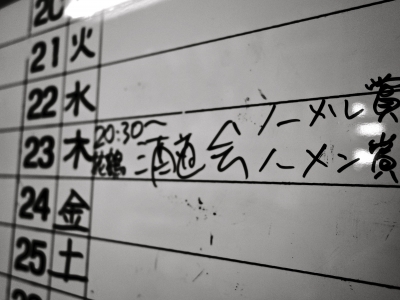 20
21 火
22 水
ノーメル賞
23 木 20:30〜
酒道会 ノーメン賞
24 金
25 土